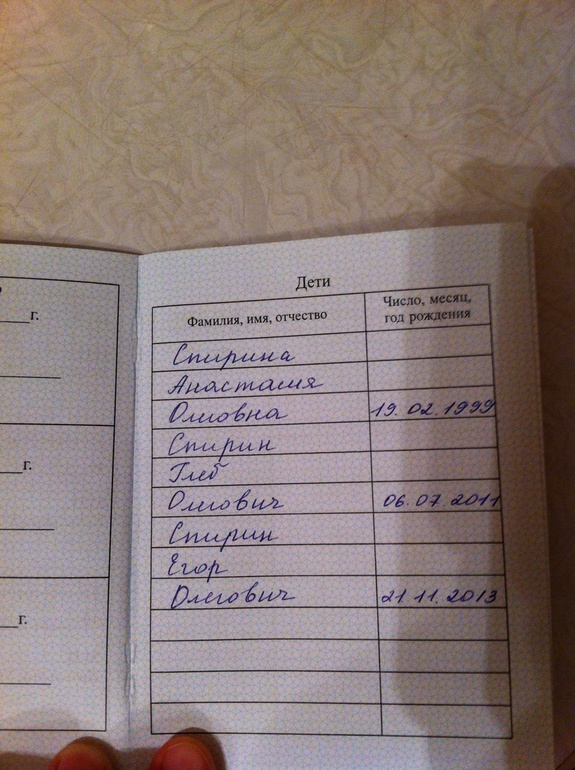 г.
г.
г.
Дети
Фамилия, имя, отчество
Число, месяц,
год рождения
Спирина
Анастасия
Олеговна 19.02.1999
Спирин
Глеб
Олегович 06.07.2011
Спирин
Егор
Олегович 21.11.2013